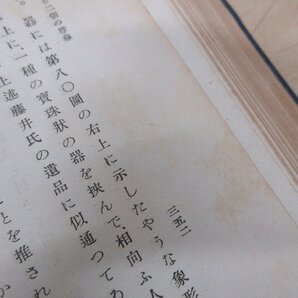 三五二
器には第八〇圖の右上に示したやうな象形
上に一種の寶珠狀の器を挾んで、相向ふ人
上述藤井氏の遺品に似通つてゐ
とを推され